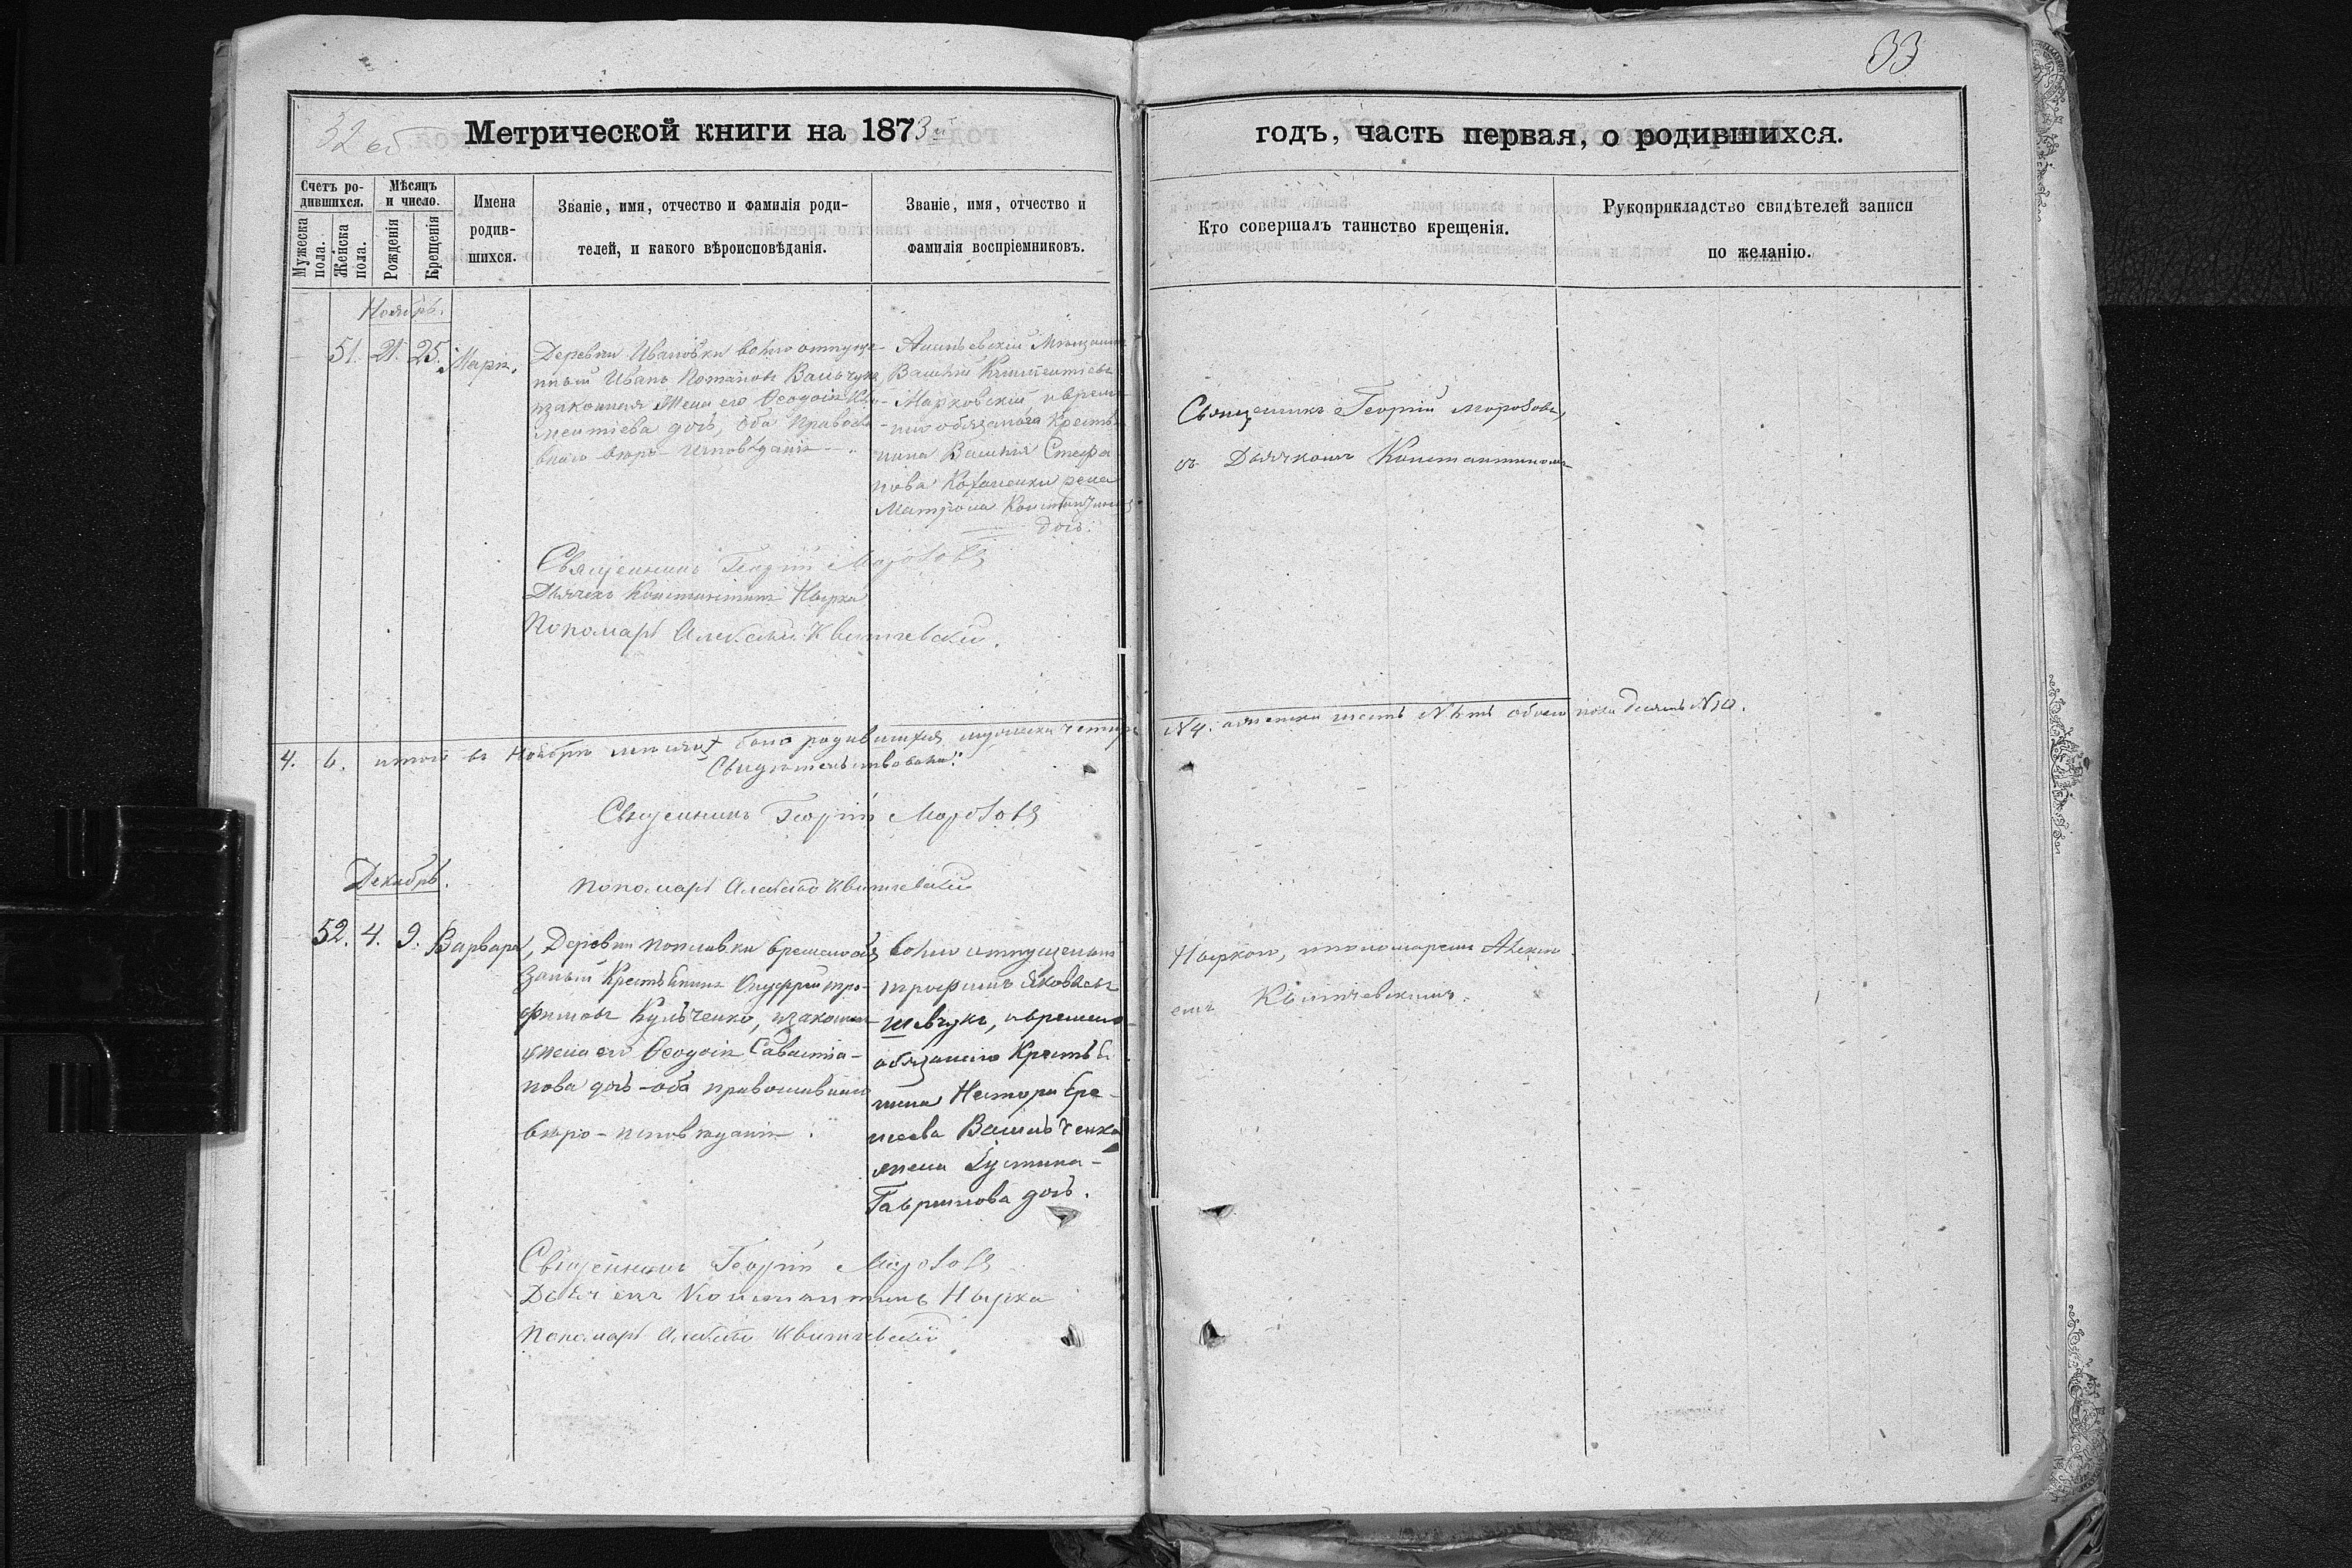 33
32 об
Метрической книги на 1873й
годъ, часть первая, о родившихся.
Счетъ ро-
дившихся.
Мужеска
пола.
Женска
пола.
Мѣсяцъ
и число.
Рожденія
Крещенія
Имена
родив-
шихся.
Званіе, имя, отчество и фамилія роди-
телей, и какого вѣроисповѣданія.
Званіе, имя, отчество и
фамилія воспріемниковъ.
Кто совершалъ таинство крещенія.
Рукоприкладство свидѣтелей записи
по желанію.
Ноябрь.
51. 21. 25. Марія.
Деревни Ивановки вольно отпуще-
нный Иванъ
изаконная жена его Ѳеодосія Кли-
ментіева дочь, оба Правосла-
внаго вѣро-исповѣданія
Мѣщанинъ
Василій Климентіевъ
Марковскій и време-
нно обязаннаго Крестья-
нина Василія Стефа
нова жена
Матрона Константинова
дочь.
Священникъ Георгій Морозовъ,
съ Дьячкомъ Константиномъ
Священникъ Георгій Морозовъ
Дьячекъ Константинъ Нырко
Пономарь Алексѣй Квитчевскій.
4. 6. итого въ Ноябрѣ мѣсяцѣ было родившихся мужеска четыре
N 4. а женска шесть N 6ть обоего пола десять N 10.
Свидѣтельствовали:
Священникъ Георгій Морозовъ
Пономарь Алексѣй Квитчевскій
Декабрь.
52. 4. 9. Варвара,
Деревни Поплавки временнообя
занный Крестьянинъ Онуфрій Тро-
фимовъ Кульченко, изаконная
жена его Ѳеодосія Савастіа-
нова дочь - оба православнаго
вѣро-исповѣданія.
вольно отпущенный
Трофимъ Яковлевъ
Шевчукъ, и временно
обязаннаго Крестья
нина Нестора Ере-
меева Васильченка
жена Іустина
Гаврилова дочь.
Ныркою, и пономаремъ Алексѣ
емъ Квитчевскимъ.
Священникъ Георгій Морозовъ
Дьячекъ Константинъ Нырко
Пономарь Алексѣй Квитчевскій